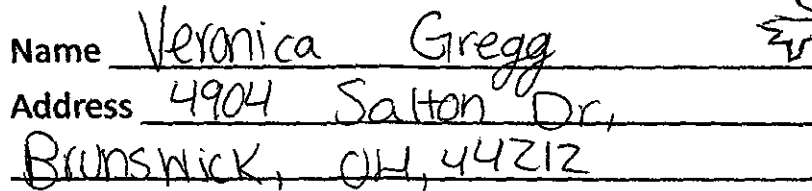 Name Veronica Gregg
Address 4904 Salton Dr,
Brunswick, OH, 44212